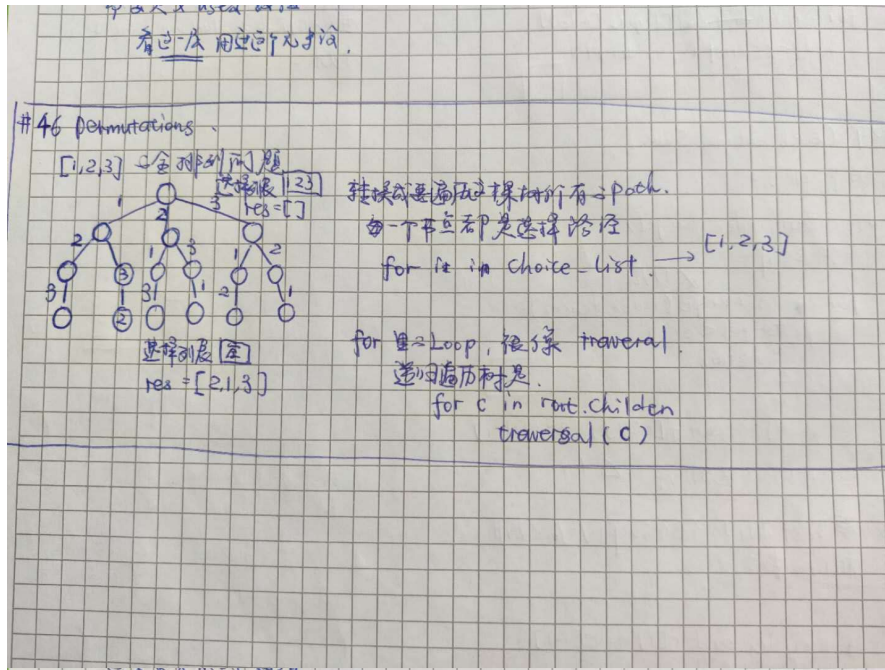 看这一层用过这个元素没.
#46 permutations.
[1,2,3] 全排列问题
选择列表 123
res=[]
1 2 3
2 1 3 1 2
3 3
3 1 2 1
2
选择列表 空
res = [2,1,3]
转换成要遍历这棵树所有 path.
每一个节点都是选择路径
for it in choice-list. → [1,2,3]
for Loop, 很像 traveral.
递归遍历树是.
for c in root.childen
traversal (c)